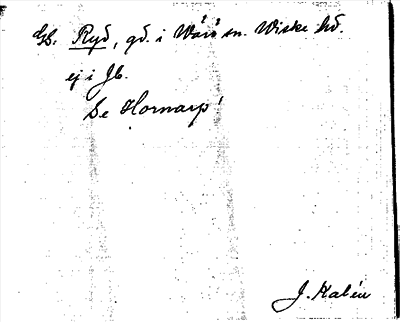 Gb. Ryd, gd. i Warö sn. Wiske hd.
ej i Jb.
Se Hornarp!
J. Kalén